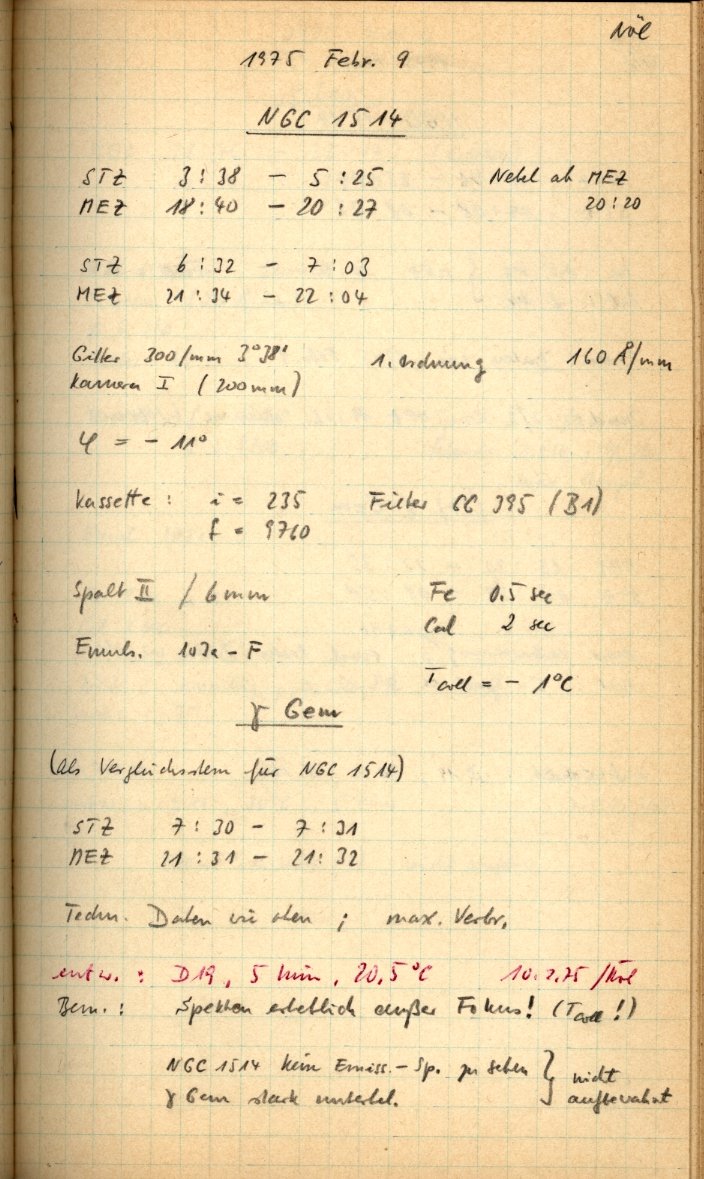 Nöl
1975 Febr. 9
NGC 1514
STZ 3:38 – 5:25 Nebel ab MEZ
MEZ 18:40 – 20:27 20:20
STZ 6:32 – 7:03
MEZ 21:34 – 22:04
Gitter 300/mm 3°38' 1. Ordnung 160 Å/mm
Kamera I (200mm)
φ = – 11°
Kassette: i = 235 Filter GG 395 (B1)
f = 9760
Spalt II / 6mm Fe 0.5 sec
Cal 2 sec
Emuls. 103a-F
T = – 1°C
γ Gem
(als Vergleichsstern für NGC 1514)
STZ 7:30 – 7:31
MEZ 21:31 – 21:32
Techn. Daten wie oben ; max. Verbr.
entw.: D19, 5 min, 20,5°C 10.2.75 /Nöl
Bem.: Spektren erheblich außer Fokus! (T !)
NGC 1514 kein Emiss.-Sp. zu sehen } nicht
γ Gem stark unterbel. aufbewahrt